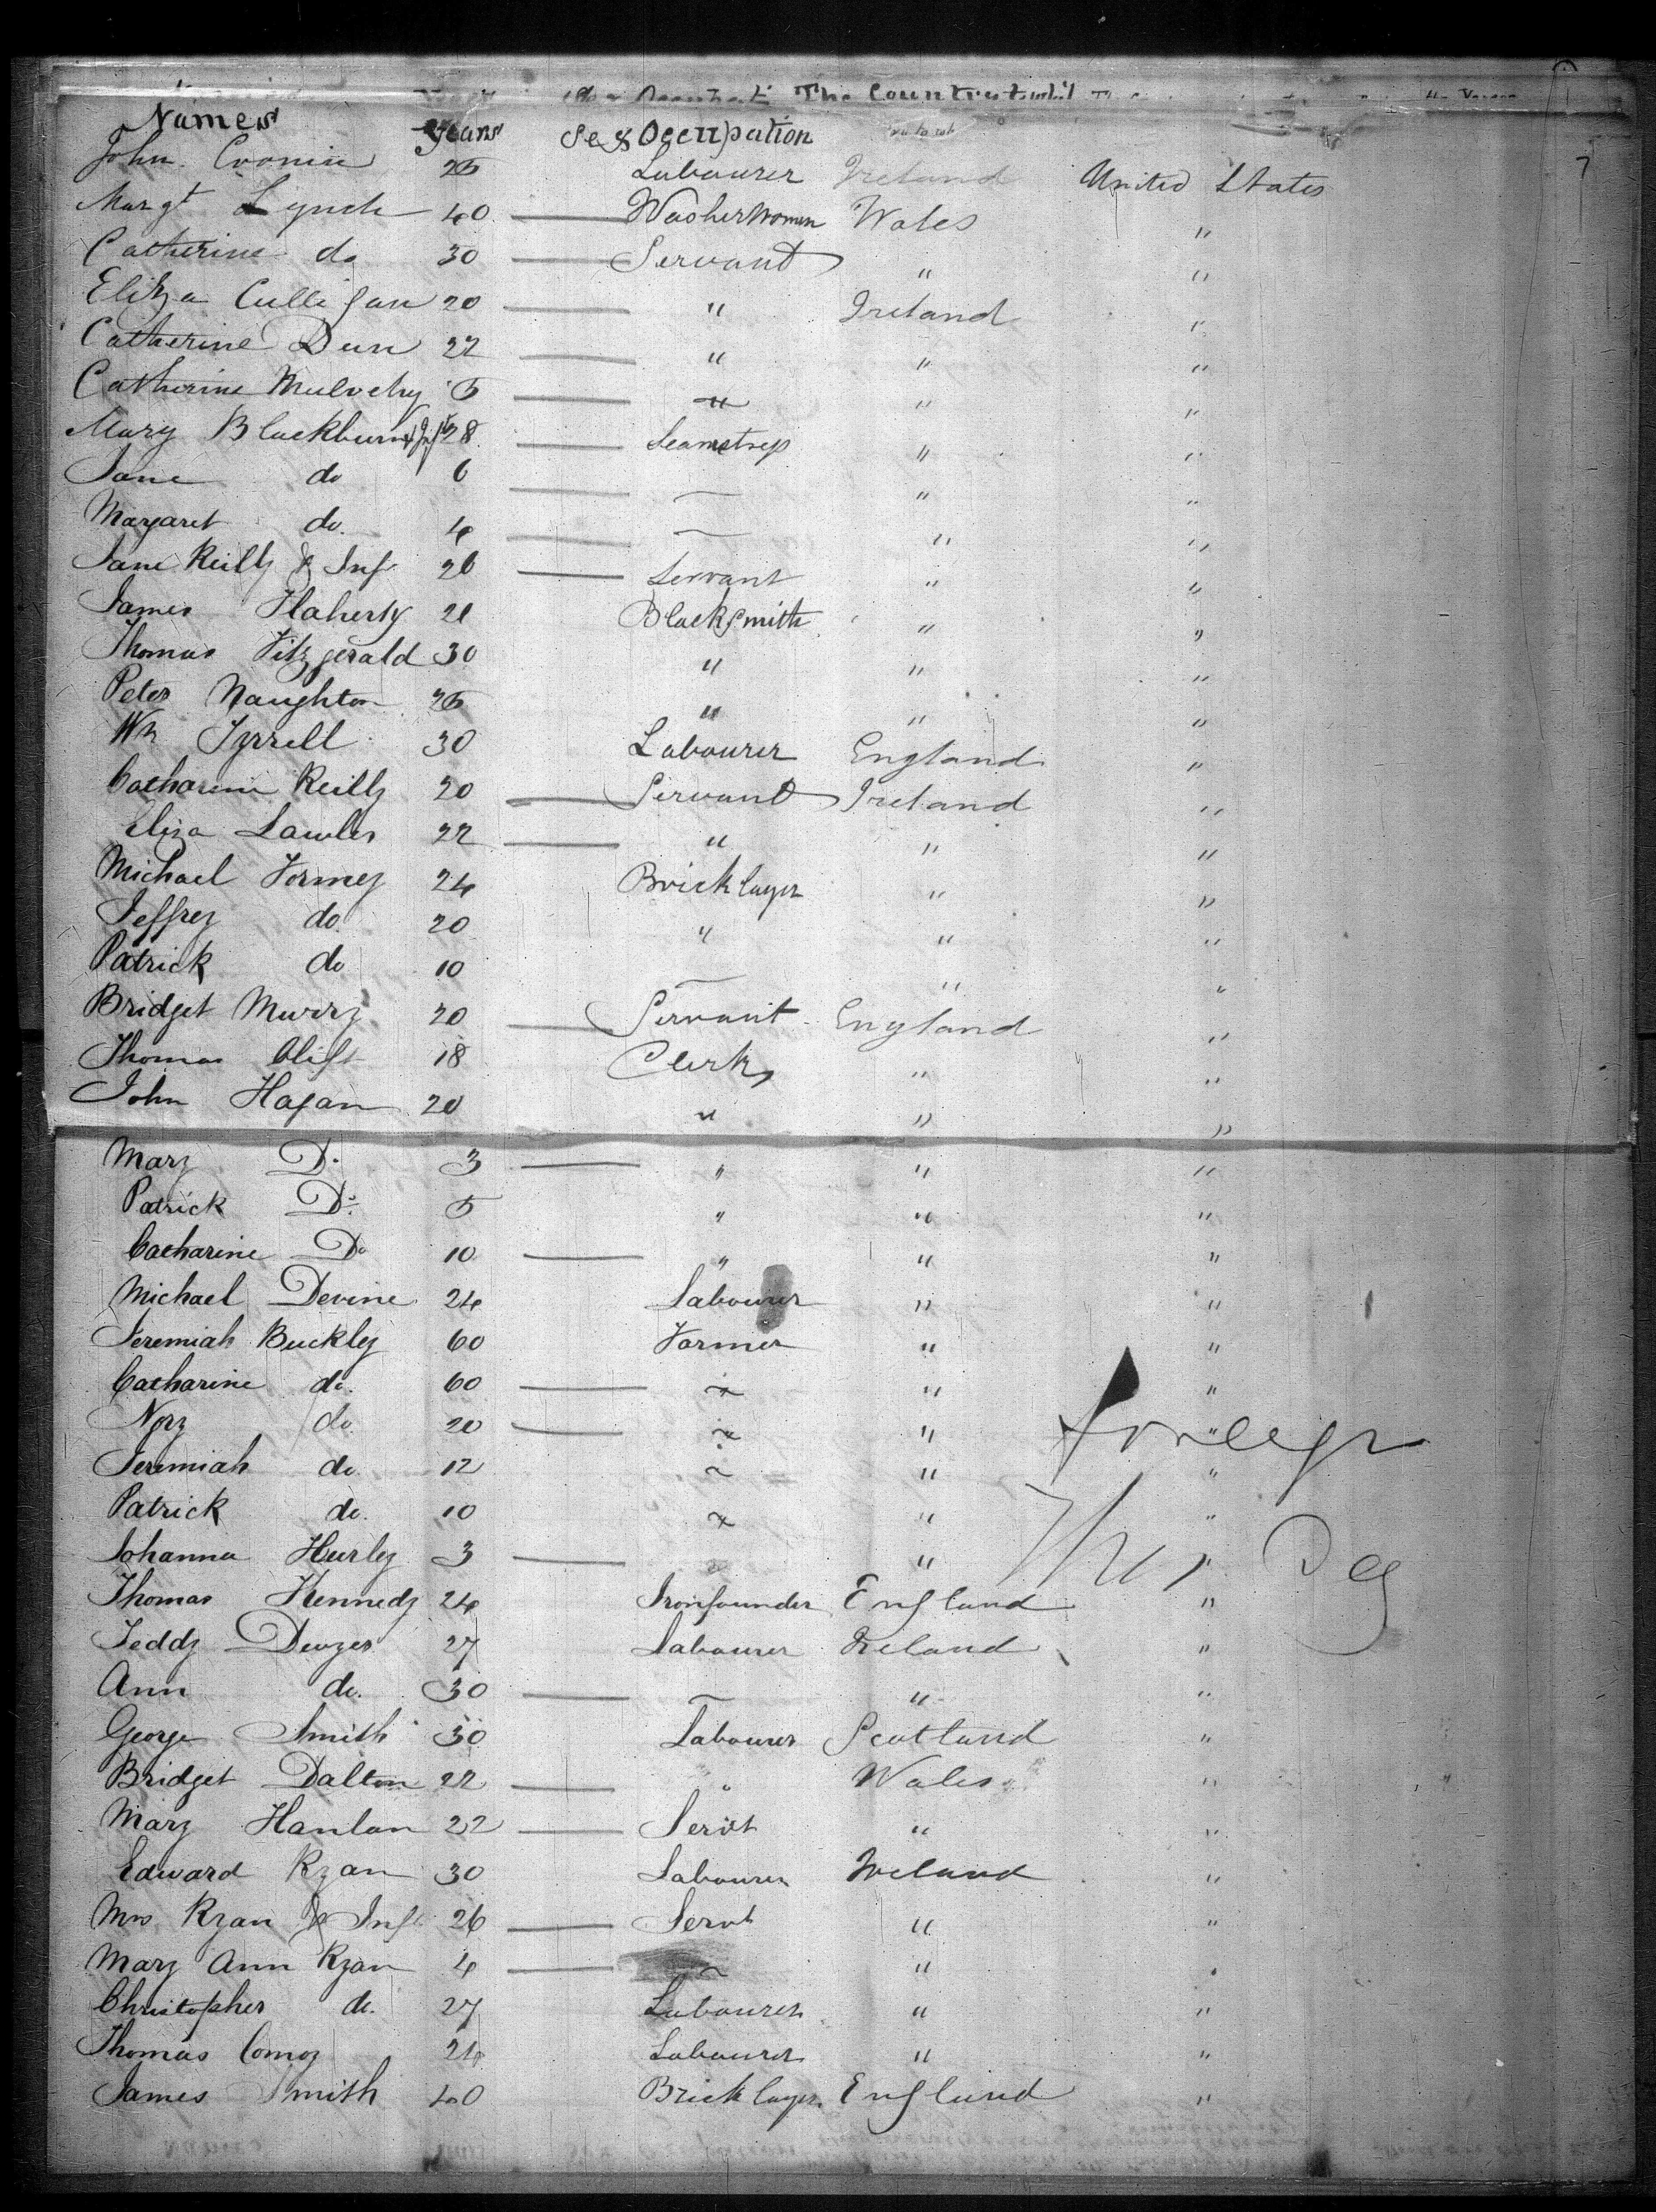 Occupati The Country to which
Names Years Sex Occupation
John Cronin 25 Labourer Ireland United States
Margt Lynch 40 Washerwomen Wales "
Catherine do 30 Servant " "
Eliza Culligan 20 " Ireland "
Catherine Dun 22 " " "
Catherine Mulvehy 5 " " "
Mary Blackburn & Inft 28 Seamstress " "
Jane do 6 — " "
Margaret do. 4 — " "
Jane Reilly & Inf. 26 Servant " "
James Flaherty 21 Blacksmith " "
Thomas Fitzgerald 30 " " "
Peter Naughton 25 " " "
Wm Tyrrell 30 Labourer England "
Catharine Reilly 20 Servant Ireland "
Eliza Lawler 22 " " "
Michael Formey 24 Bricklayer " "
Jeffrey do. 20 " " "
Patrick do 10 — " "
Bridget Murry 20 Servant England "
Thomas Clift 18 Clerk " "
John Hagan 20 " " "
Mary Do 3 " " "
Patrick Do 5 " " "
Catharine Do 10 " " "
Michael Devine 24 Labourer " "
Jeremiah Buckley 60 Farmer " "
Catharine do. 60 " " "
Nory do. 20 " " "
Foreign
Jeremiah do. 12 " " "
Patrick do. 10 " " "
Johanna Hurley 3 " " "
Thomas Kennedy 24 Ironfounder England "
Teddy Dwyer 27 Labourer Ireland "
Ann do. 30 — " "
George Smith 30 Labourer Scotland "
Bridget Dalton 22 " Wales "
Mary Hanlon 22 Servt " "
Edward Ryan 30 Labourer Ireland "
Mrs Ryan & Inft 26 Servt " "
Mary Ann Ryan 4 — " "
Christopher do. 27 Labourer " "
Thomas Comoy 24 Labourer " "
James Smith 40 Bricklayer England "